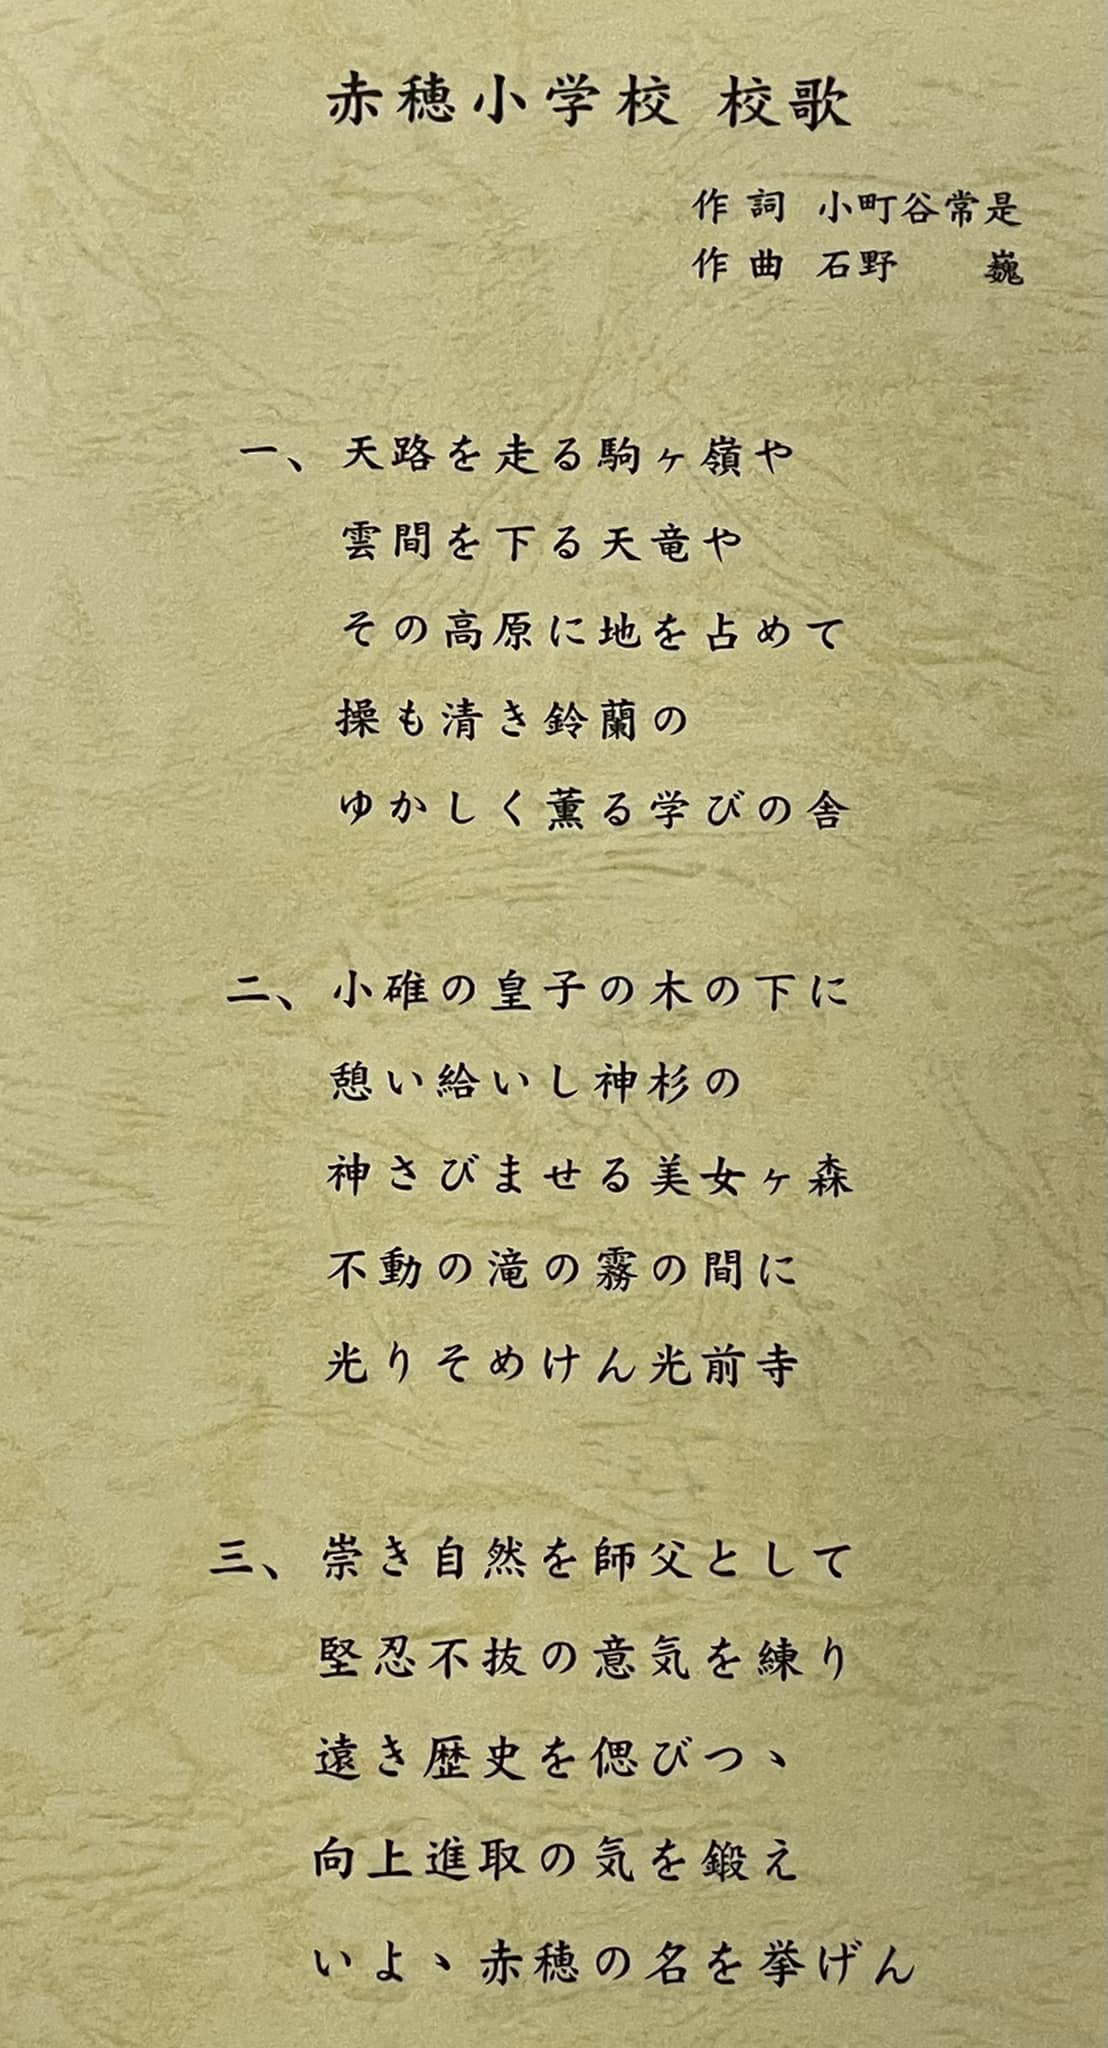 赤穂小学校 校歌
作詞 小町谷常是
作曲 石野 巍
一、天路を走る駒ヶ嶺や
雲間を下る天竜や
その高原に地を占めて
操も清き鈴蘭の
ゆかしく薫る学びの舎
二、小碓の皇子の木の下に
憩い給いし神杉の
神さびませる美女ヶ森
不動の滝の霧の間に
光りそめけん光前寺
三、崇き自然を師父として
堅忍不抜の意気を練り
遠き歴史を偲びつヽ
向上進取の気を鍛え
いよヽ赤穂の名を挙げん